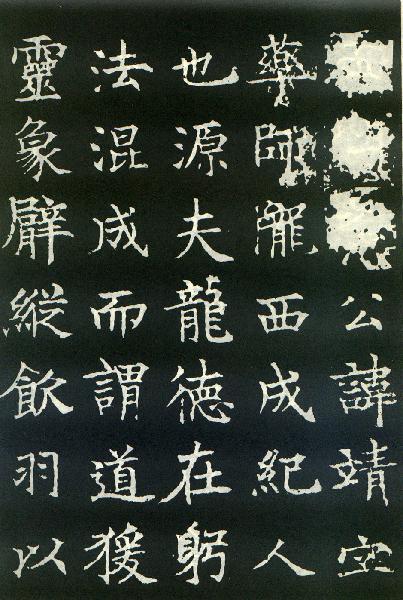 公諱靖字
藥師隴西成紀人
也源夫龍德在躬
法混成而謂道猨
靈象臂縱飲羽以